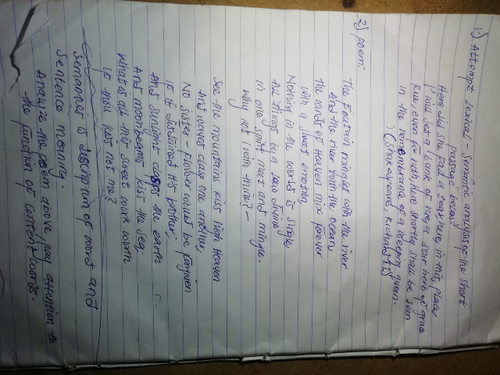 1) Attempt lexical - semantic analysis of the short
passage below
Here did she fall a tear, here in this place
I will set a bank of rue, a sour herb of grace
Rue, even for ruth here shortly shall be seen
in the remembrance of a weeping queen.
(Shakespeare, Richard II)
2) poem
The Fountain mingles with the river
And the river with the ocean,
the winds of Heaven mix forever
with a sweet emotion,
Nothing in the world is single
All things by a law divine
in one spirit meet and mingle -
Why not I with thine; -
See the mountains kiss high Heaven
And waves clasp one another,
No sister-flower would be forgiven
if it disdained it's brother;
And sunlight clasps the earth
And moonbeams kiss the sea:
What is all this sweet work worth
if thou kiss not me?
Semantics is description of word and
Sentence meaning.
Analyze the poem above, pay attention to
the function of content words.